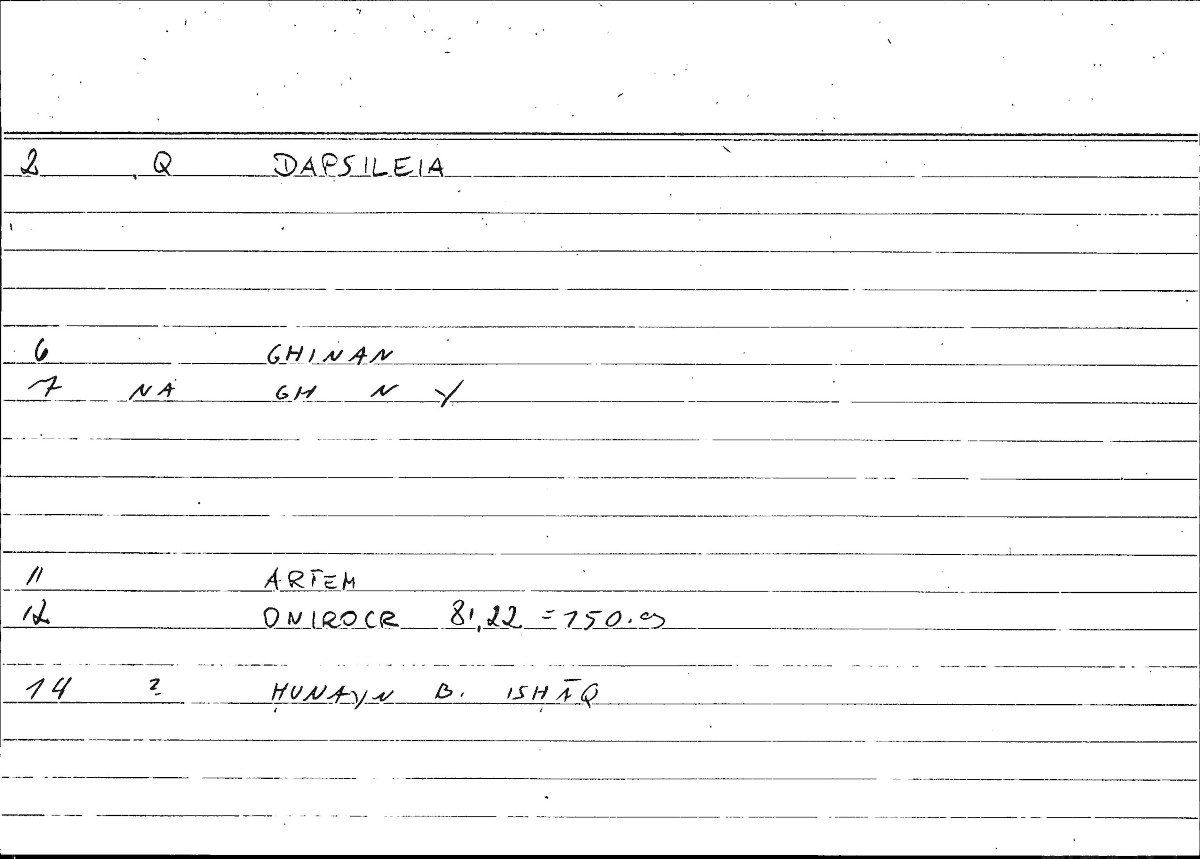 2 Q DAPSILEIA
6 GHINAN
7 NA GH N Y
11 ARTEM
12 ONIROCR 81,22 = 150.
14 ? ḤUNAYN B. ISḤĀQ